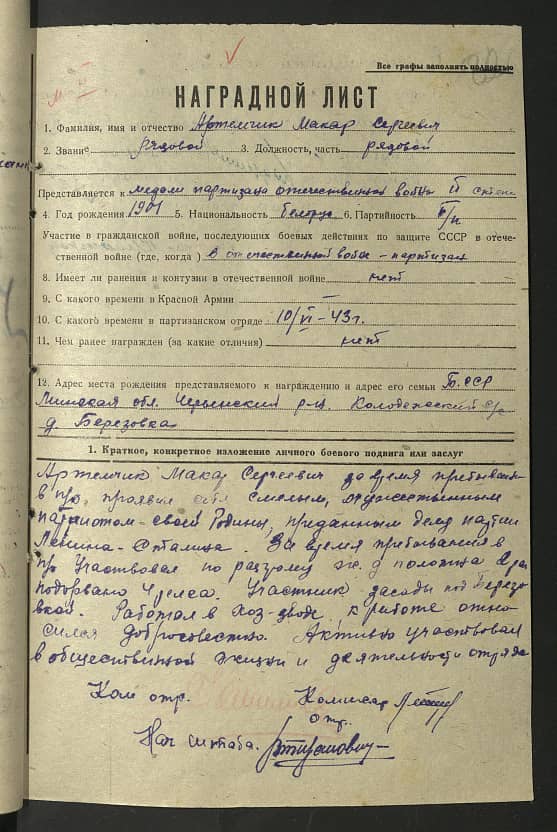 Все графы заполнять полностью
НАГРАДНОЙ ЛИСТ
1. Фамилия, имя и отчество Артемчик Макар Сергеевич
2. Звание рядовой 3. Должность, часть рядовой
Представляется к медали партизана отечественной войны II степени
4. Год рождения 1901 5. Национальность белорус 6. Партийность б/п
Участие в гражданской войне, последующих боевых действиях по защите СССР в отече-
ственной войне (где, когда) В отечественной войне - партизан
8. Имеет ли ранения и контузии в отечественной войне нет
9. С какого времени в Красной Армии —
10. С какого времени в партизанском отряде 10/VI-43г.
11. Чем ранее награжден (за какие отличия) нет
12. Адрес места рождения представляемого к награждению и адрес его семьи БССР
Минская обл. Червенский р-н. Колодежский с/с
д. Березовка
1. Краткое, конкретное изложение личного боевого подвига или заслуг
Артемчик Макар Сергеевич во время пребывания
в п/о, проявил себя смелым, мужественным
патриотом своей Родины, преданным делу партии
Ленина-Сталина. За время пребывания в
п/о участвовал по разгрому ж.д полотна 2 раза
подорвано 4 рельса. Участник засады под Березов
кой. Работал в хоз-взводе, к работе отно-
сился добросовестно. Активно участвовал
в общественной жизни и деятельности отряда
Ком отр. Комиссар
отр.
Нач штаба.